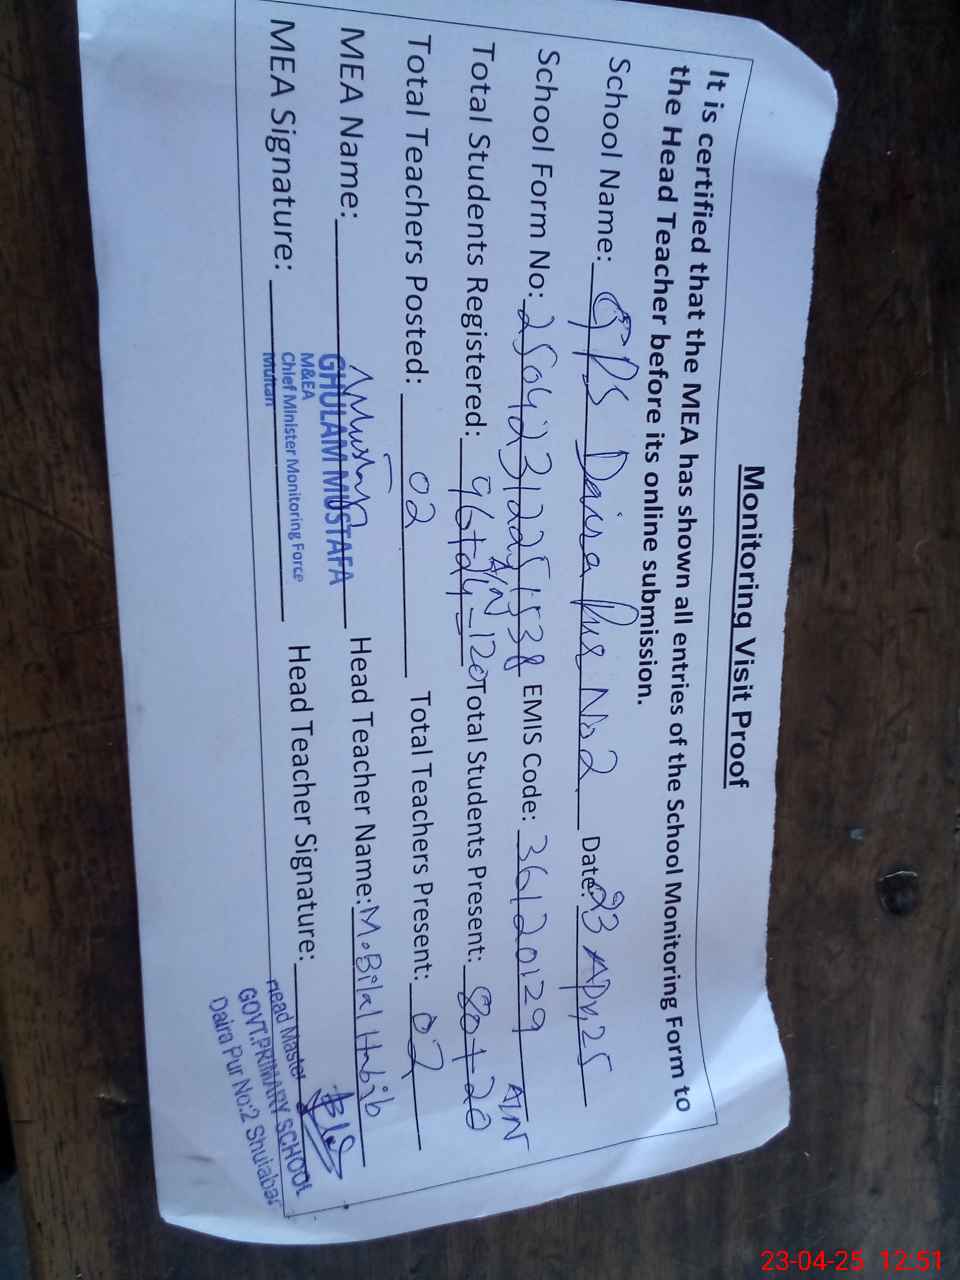 Monitoring Visit Proof
It is certified that the MEA has shown all entries of the School Monitoring Form to
the Head Teacher before its online submission.
School Name: GPS Daira Pur No 2 Date: 23 Apr, 25
School Form No: EMIS Code: 36120129
Total Students Registered: 96+24=120 Total Students Present: 80+20
A/N A/N
Total Teachers Posted: 02 Total Teachers Present: 02
MEA Name: GHULAM MUSTAFA Head Teacher Name: M. Bilal Habib
M&EA
Chief Minister Monitoring Force
Multan
MEA Signature: Head Teacher Signature:
Head Master
GOVT.PRIMARY SCHOOL
Daira Pur No:2 Shujabad
23-04-25 12:51